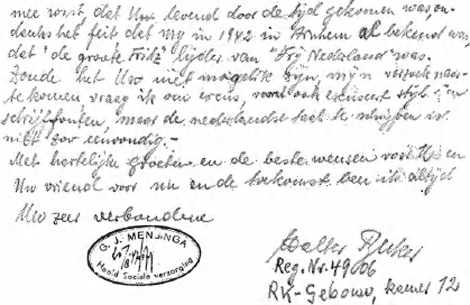 mee vorst, dat Uw levend door de tijd gekomen was, on-
danks het feit dat my in 1942 in Arnhem al bekend was
dat "de groote Fritz" lijder van "Vrij Nederland" was.
Zoude het Uw niet mogelik zijn, mijn versuck na
te komen, vraag ik om excus, ook excuseert styl- en
schrijffouten, maar de nederlandse taal te schrijben is
niet zoo eenvoudig.-
Met hartelijke groeten en de beste wensen voor U en
Uw vriend voor nu en de toekomst ben ik altijd
Uw zeer verbondene
G. J. MENSINGA
Hoofd Sociale verzorging
Walter
Reg. Nr. 49006
RK-Gebouw, kamer 12